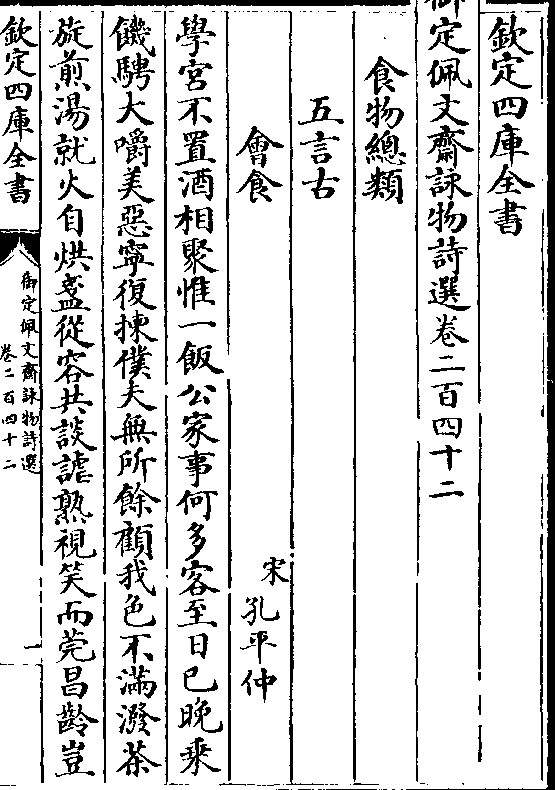 欽定四庫全書
御定佩文齋詠物詩選卷二百四十二
食物總類
五言古
會食
宋孔平仲
學宮不置酒相聚惟一飯公家事何多客至日已晚乘
饑騁大嚼美惡寧復揀僕夫無所餘顧我色不滿潑茶
旋煎湯就火自烘盞從容共談謔熟視笑而莞昌齡豈
欽定四庫全書
御定佩文齋詠物詩選
卷二百四十二
一